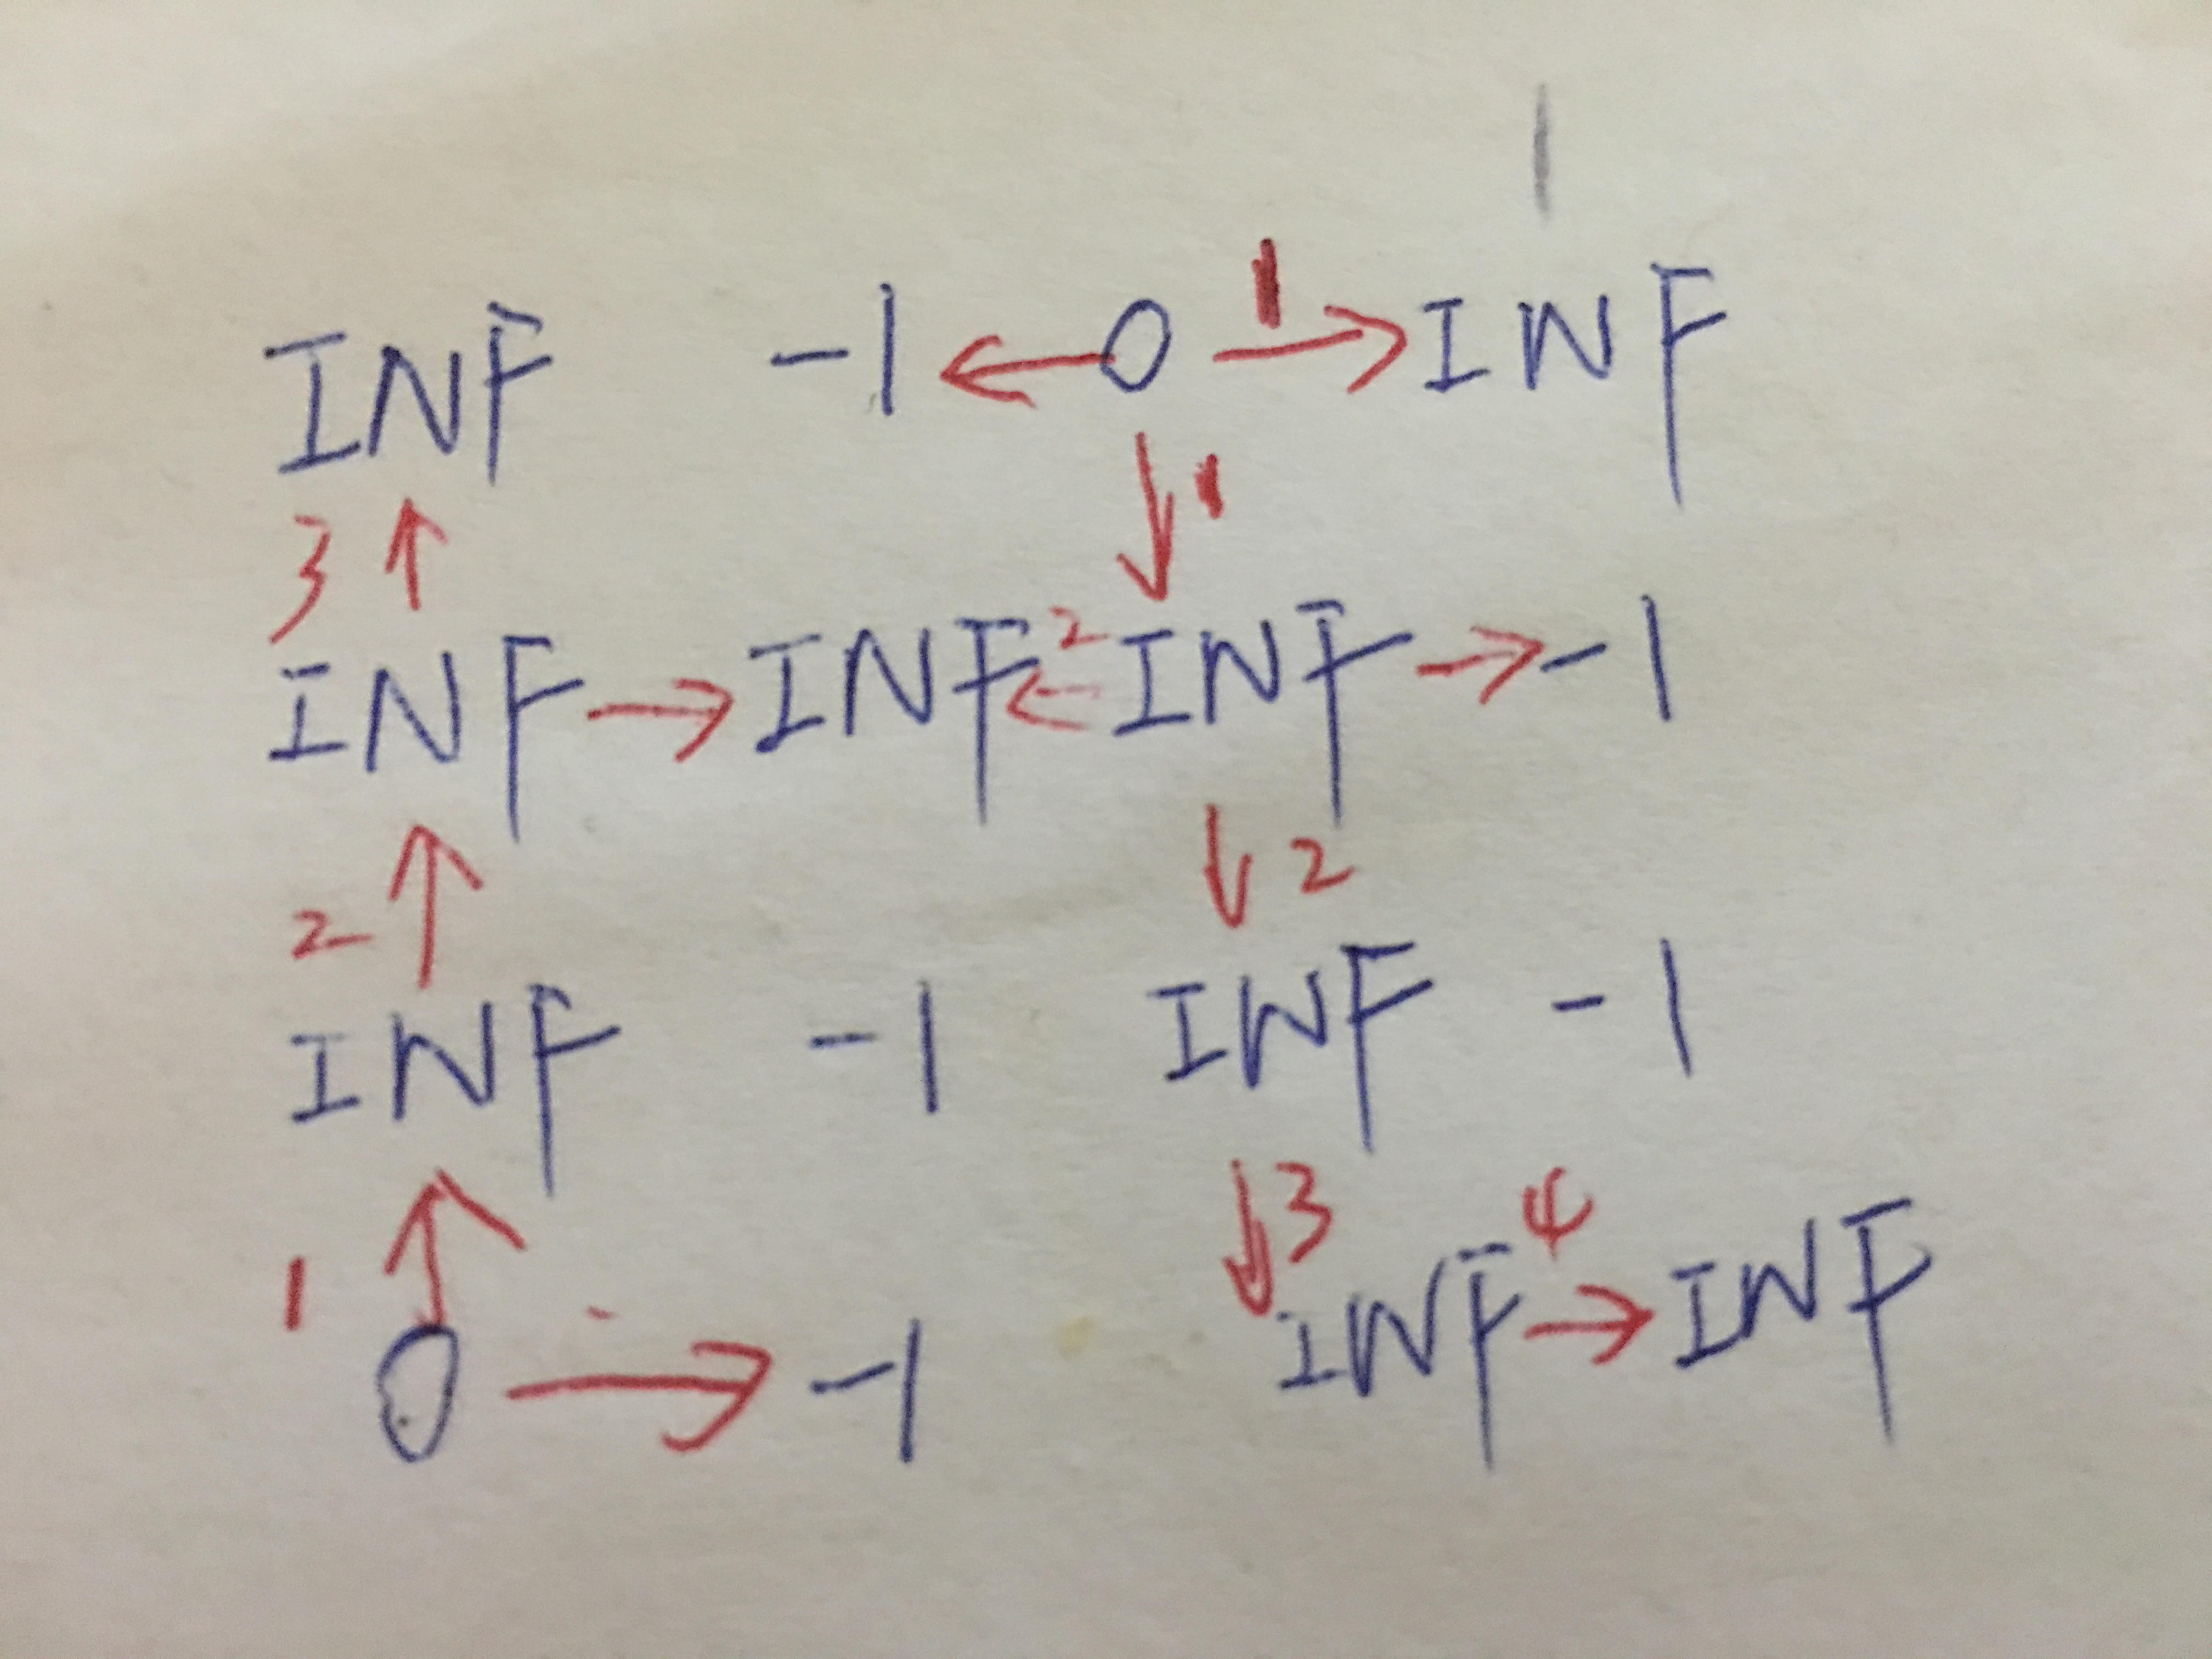 1
INF -1 0 INF
3 1
2
INF INF INF -1
2 2
INF -1 INF -1
1 3 4
0 -1 INF INF